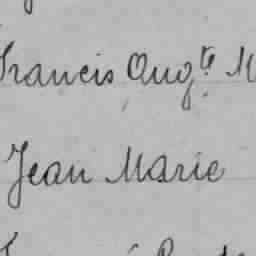 Francis Augte M
Jean Marie